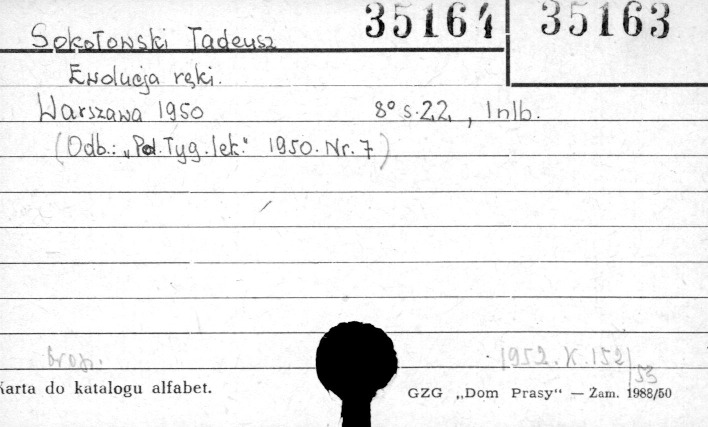 35164 35163
Sokołowski Tadeusz
Ewolucja ręki.
Warszawa 1950 8° s.22, 1nlb.
(Odb.: „Pol.Tyg.lek." 1950. Nr. 7)
brosz.
1952.K.152/53
Karta do katalogu alfabet.
GZG „Dom Prasy“ — Zam. 1988/50